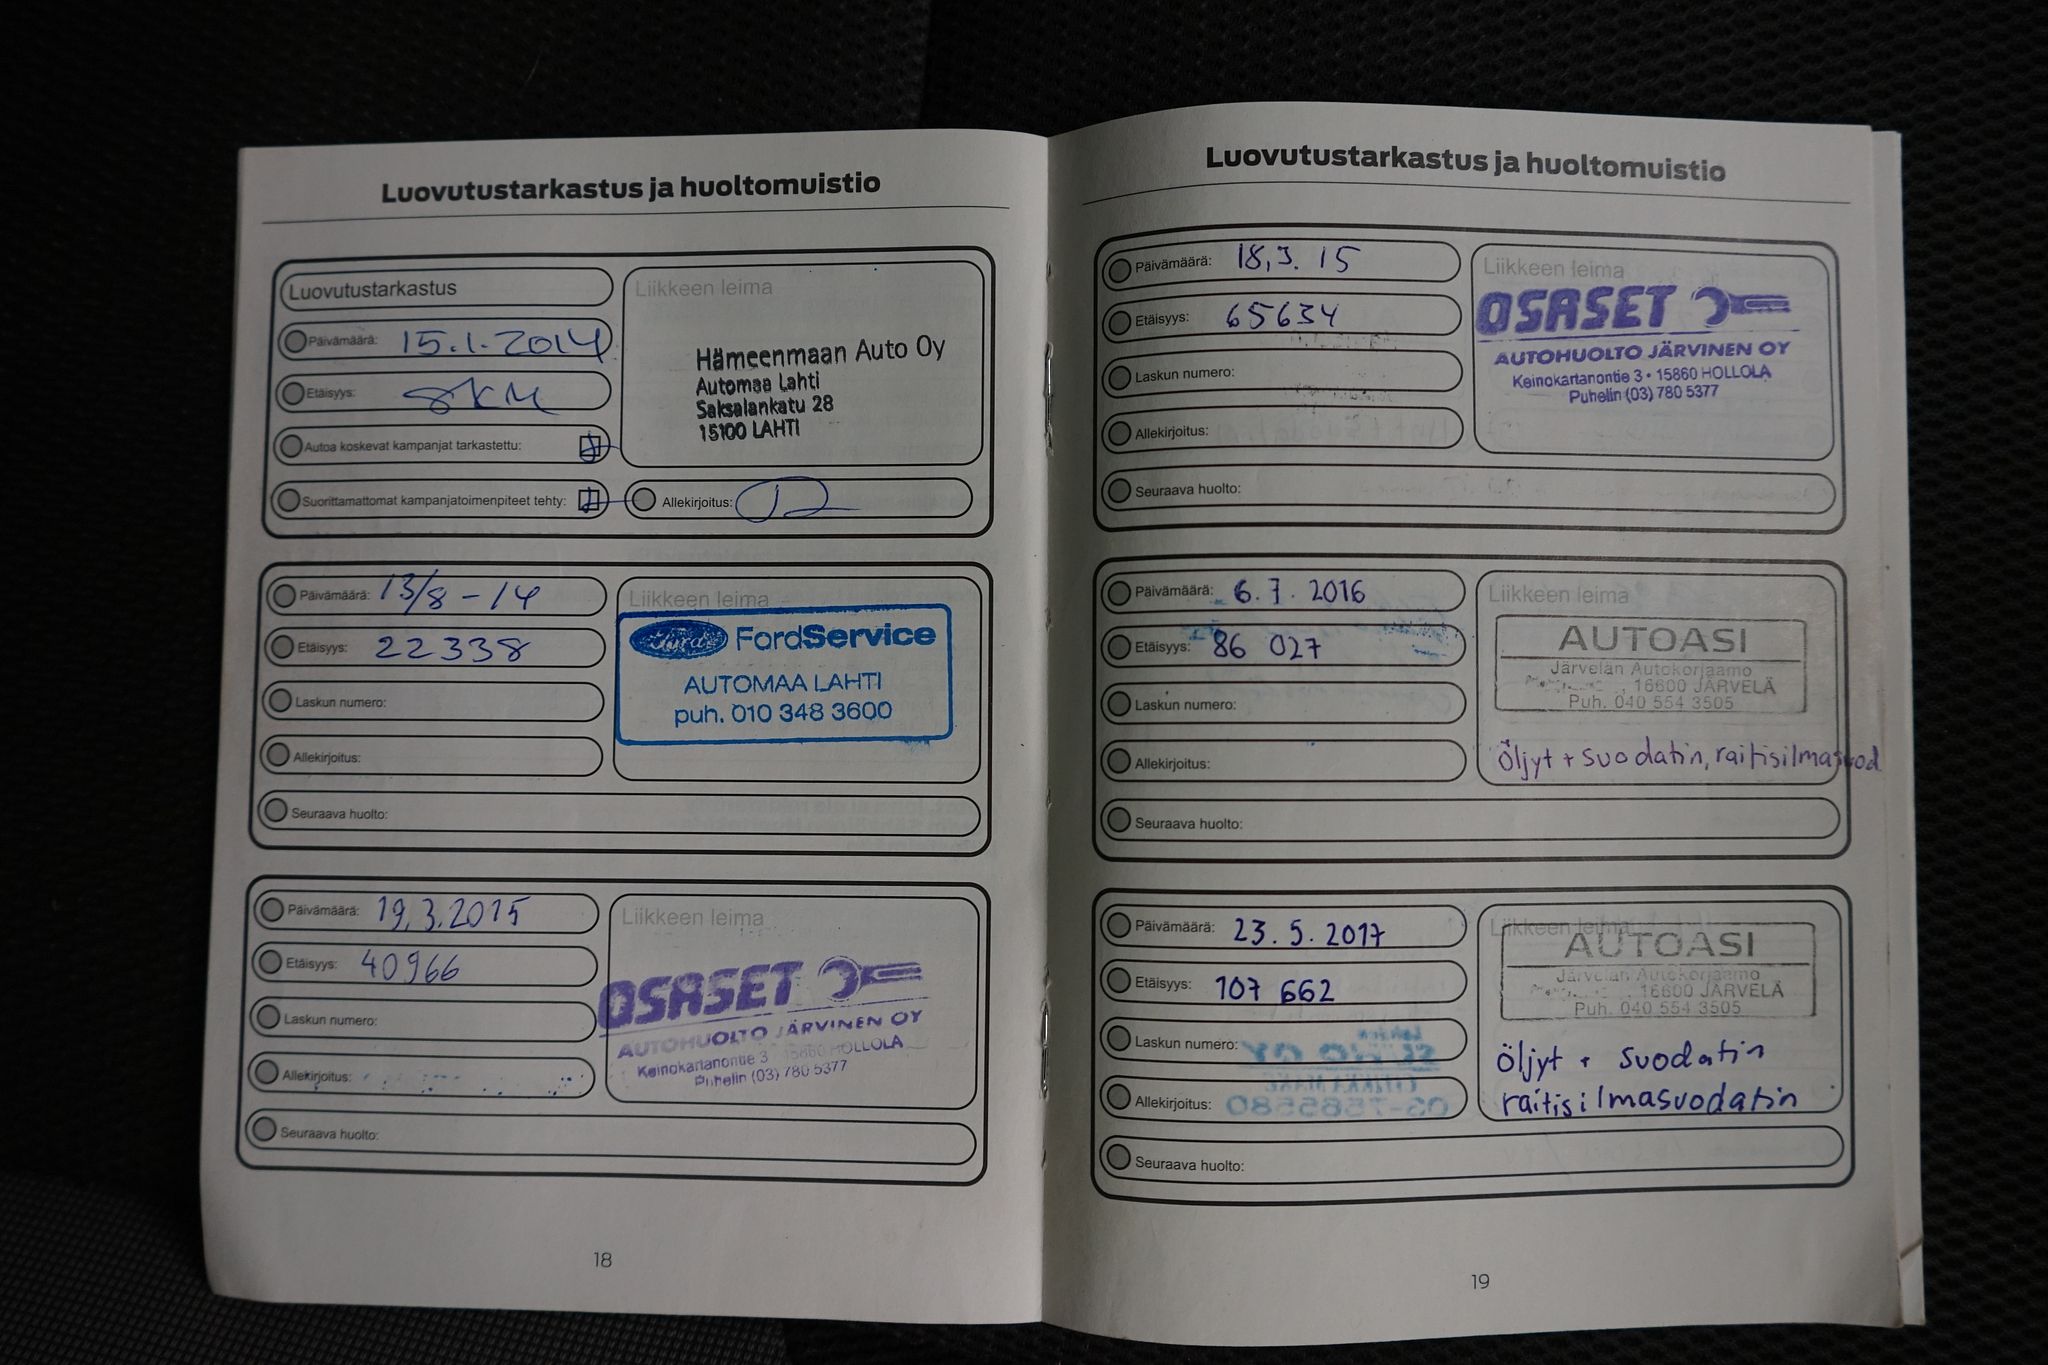 Luovutustarkastus ja huoltomuistio
Luovutustarkastus
Päivämäärä: 15.1.2014
Etäisyys: 8KM
Autoa koskevat kampanjat tarkastettu:
Suorittamattomat kampanjatoimenpiteet tehty:
Liikkeen leima
Hämeenmaan Auto Oy
Automaa Lahti
Saksalankatu 28
15100 LAHTI
Allekirjoitus:
Päivämäärä: 13/8-14
Etäisyys: 22338
Laskun numero:
Allekirjoitus:
Seuraava huolto:
Liikkeen leima
Ford FordService
AUTOMAA LAHTI
puh. 010 348 3600
Päivämäärä: 19.3.2015
Etäisyys: 40966
Laskun numero:
Allekirjoitus:
Seuraava huolto:
Liikkeen leima
OSASET
AUTOHUOLTO JÄRVINEN OY
Keinokartanontie 3 15860 HOLLOLA
Puhelin (03) 780 5377
18
Luovutustarkastus ja huoltomuistio
Päivämäärä: 18,3.15
Etäisyys: 65634
Laskun numero:
Allekirjoitus:
Seuraava huolto:
Liikkeen leima
OSASET
AUTOHUOLTO JÄRVINEN OY
Keinokartanontie 3 • 15860 HOLLOLA
Puhelin (03) 780 5377
Päivämäärä: 6.7.2016
Etäisyys: 86 027
Laskun numero:
Allekirjoitus:
Seuraava huolto:
Liikkeen leima
AUTOASI
Järvelän Autokorjaamo
16600 JÄRVELÄ
Puh. 040 554 3505
öljyt + suodatin, raitisilmasuod
Päivämäärä: 23.5.2017
Etäisyys: 107 662
Laskun numero:
Allekirjoitus:
Seuraava huolto:
Liikkeen leima
AUTOASI
Järvelän Autokorjaamo
16600 JÄRVELÄ
Puh. 040 554 3505
öljyt + suodatin
raitisilmasuodatin
19